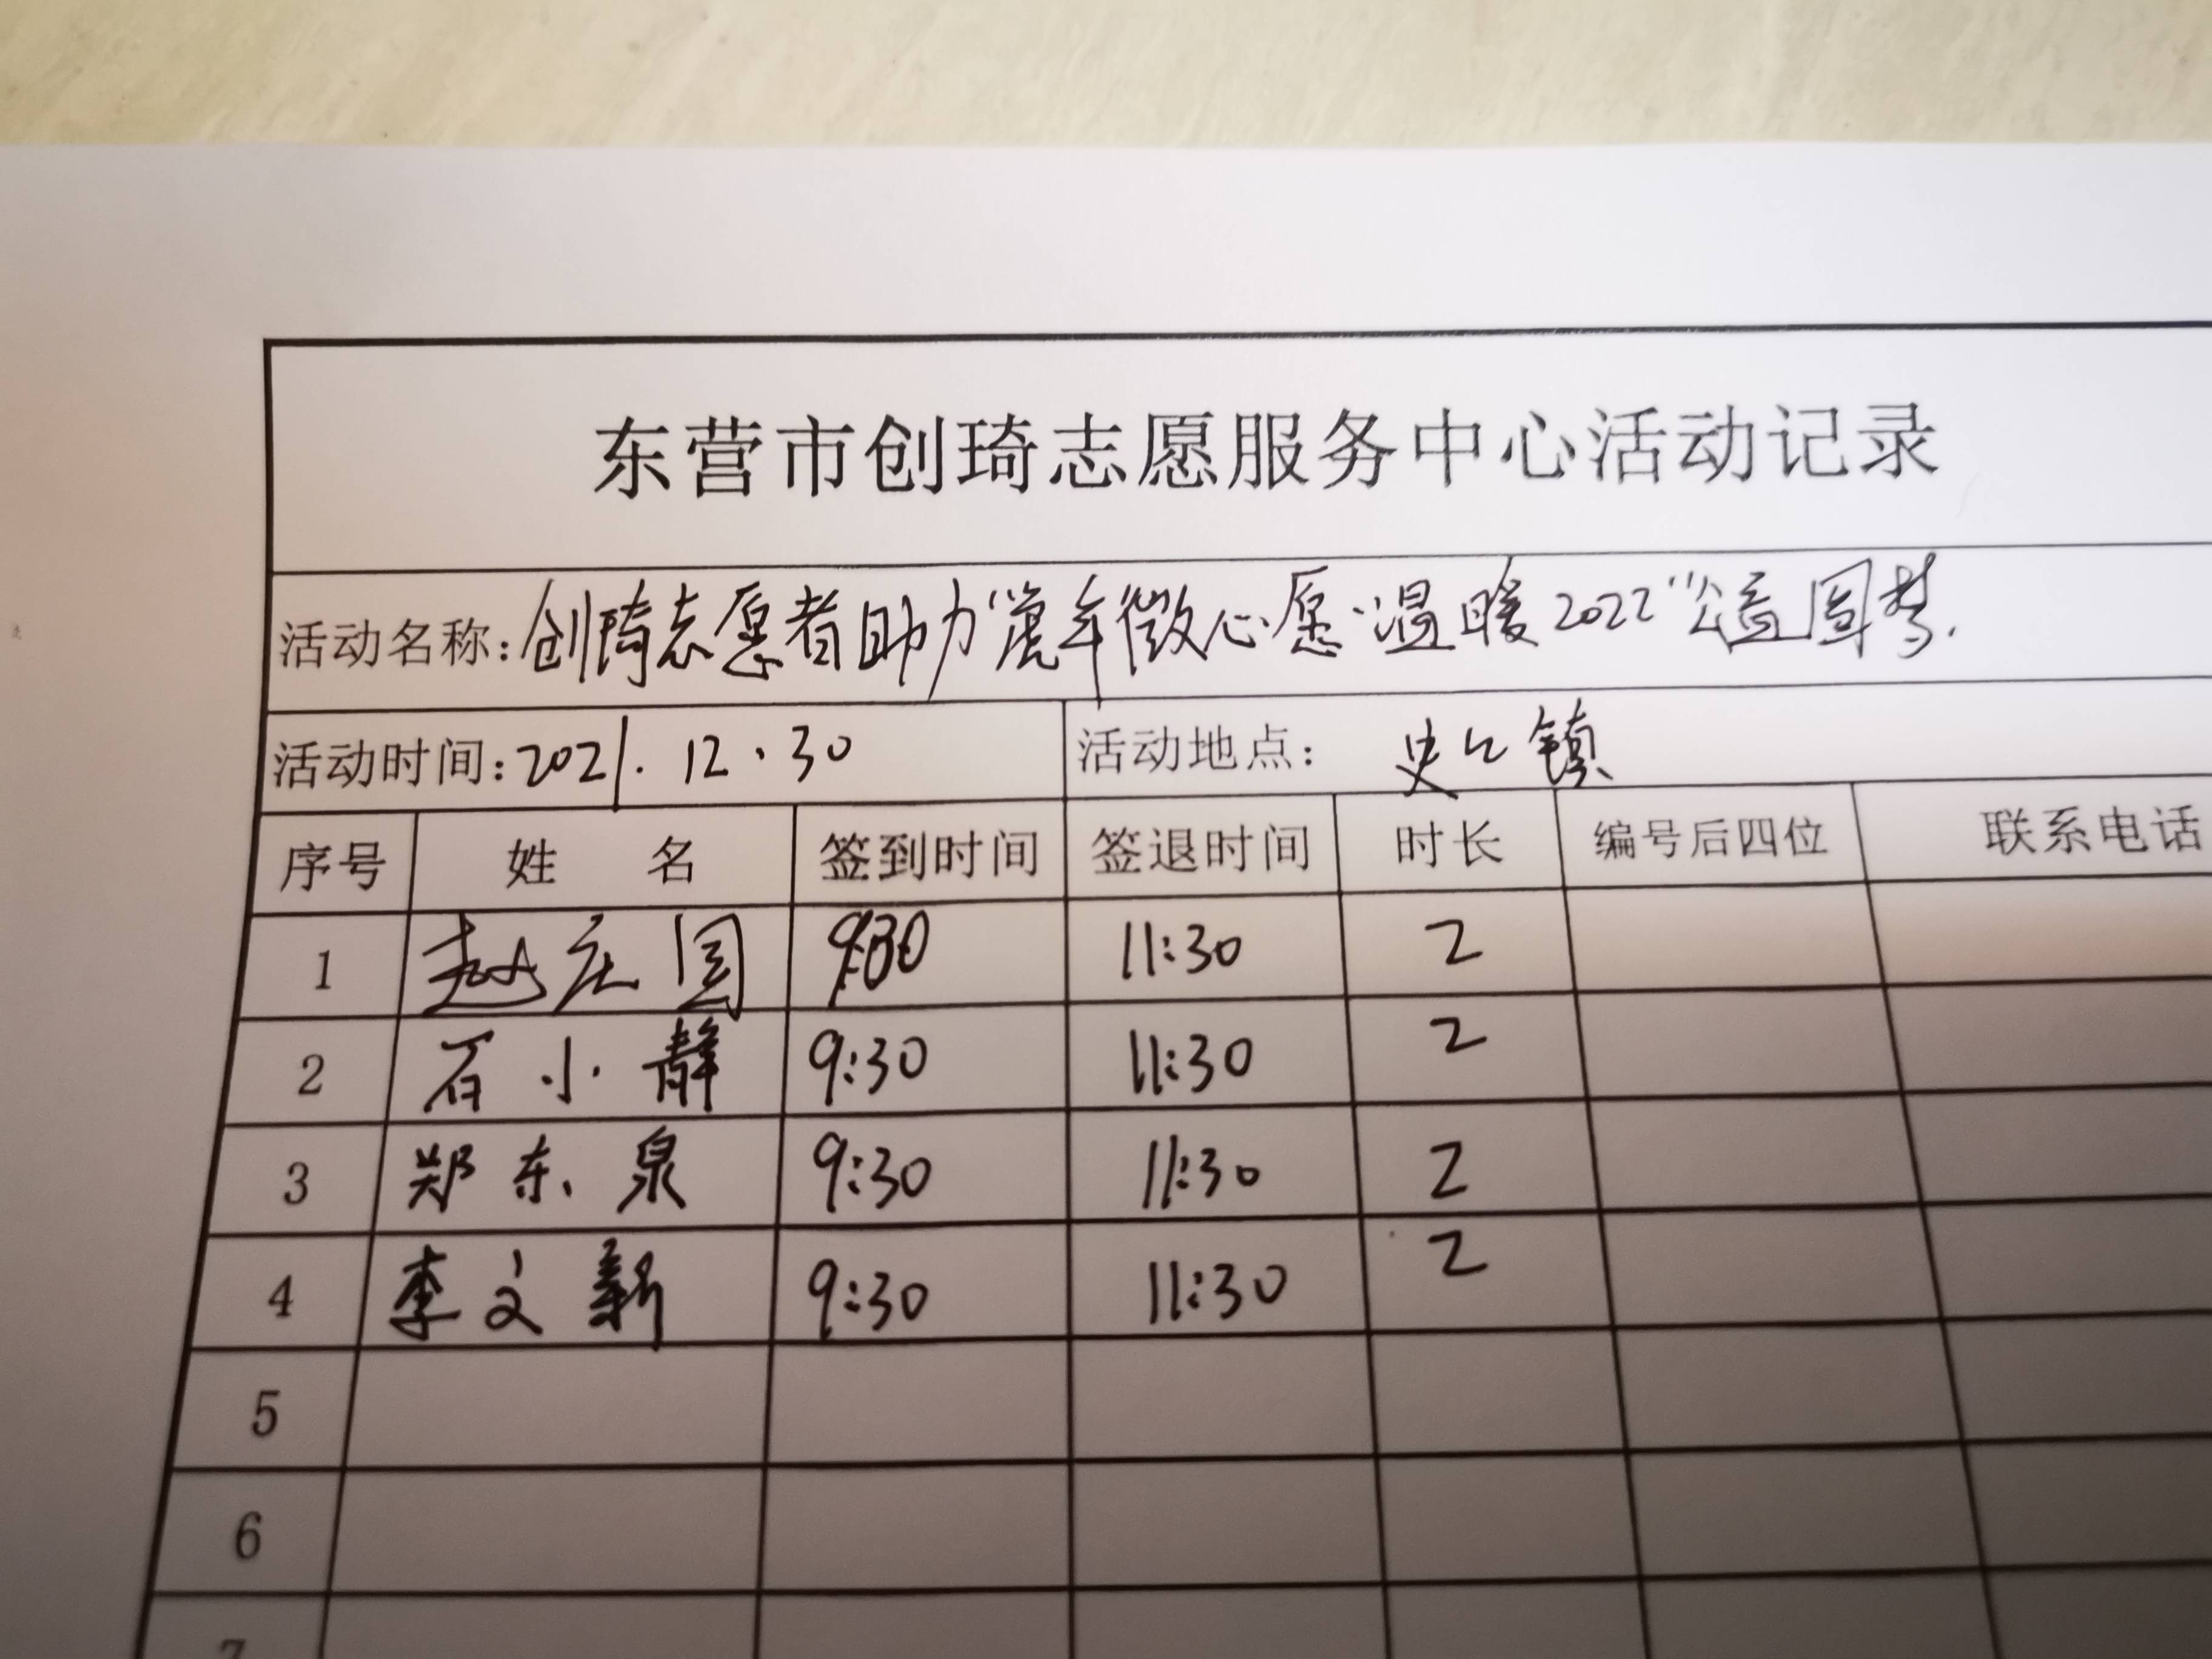 东营市创琦志愿服务中心活动记录
活动名称:创琦志愿者助力“虎年微心愿·温暖2022”公益圆梦.
活动时间:2021.12.30 活动地点: 史口镇
序号 姓 名 签到时间 签退时间 时长 编号后四位 联系电话
1 赵庆国 9:30 11:30 2
2 石小静 9:30 11:30 2
3 郑东泉 9:30 11:30 2
4 李文新 9:30 11:30 2
5
6
7